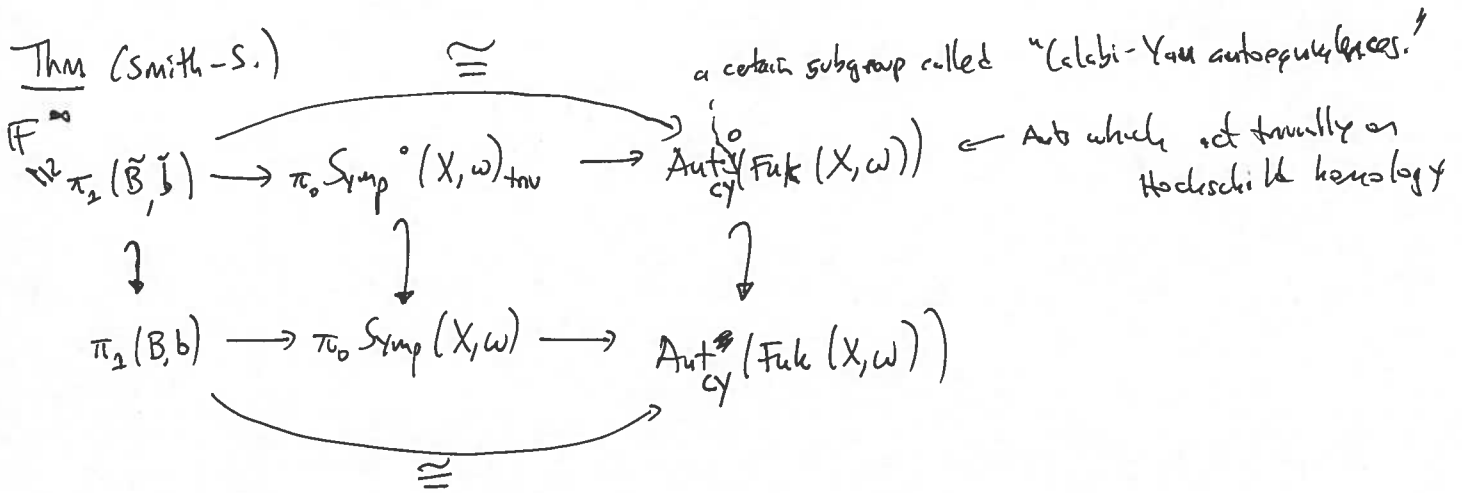 Thm (Smith-S.)
≅
a certain subgroup called "Calabi-Yau autoequivalences."
F^∞
≅ π₁(B̃, b̃) → π₀ Symp°(X, ω)_triv → Aut°_CY(Fuk(X, ω)) ← Auts which act trivially on
Hochschild homology
π₁(B, b) → π₀ Symp(X, ω) → Aut_CY(Fuk(X, ω))
≅